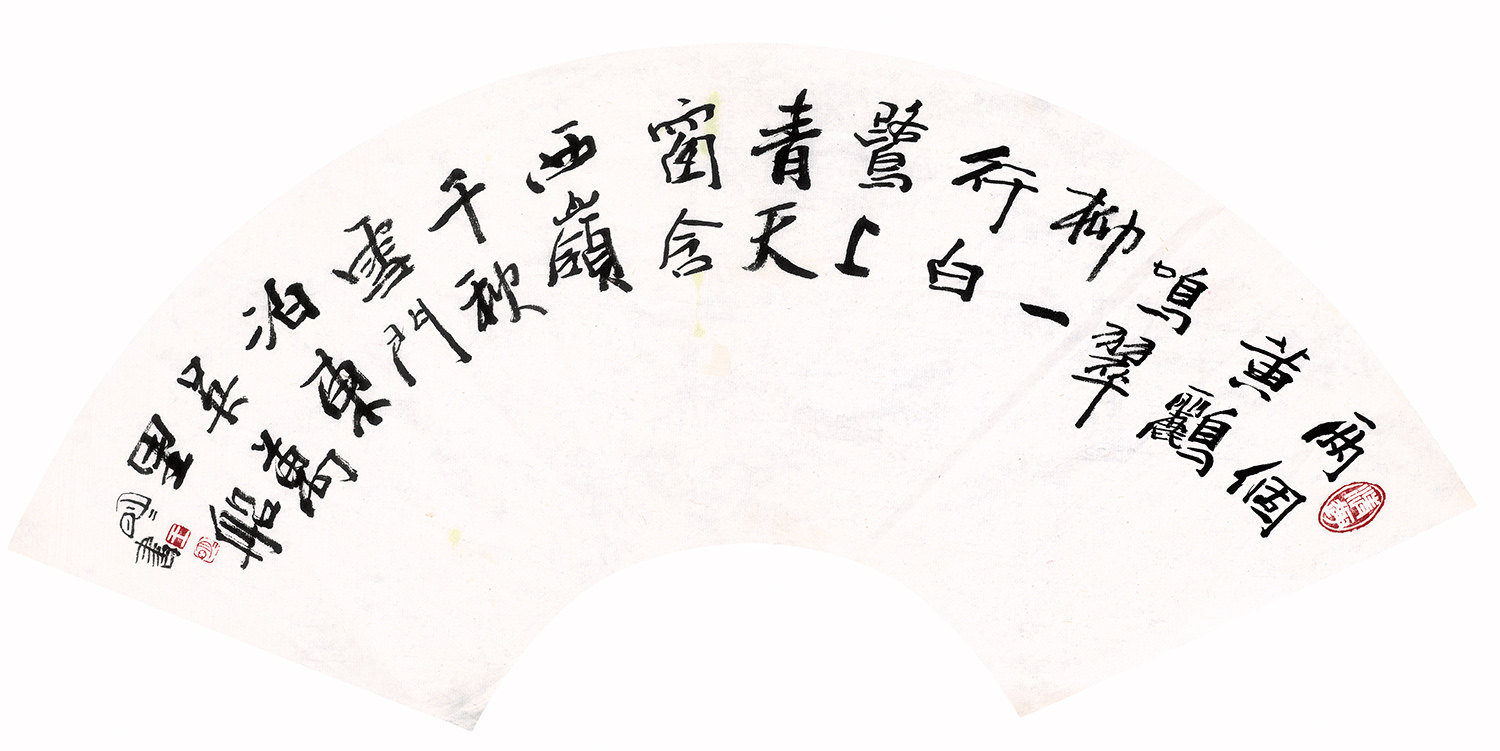 兩個
黃鸝
鳴翠
柳一
行白
鷺上
青天
窗含
西嶺
千秋
雪門
泊東
吳萬
里船
書